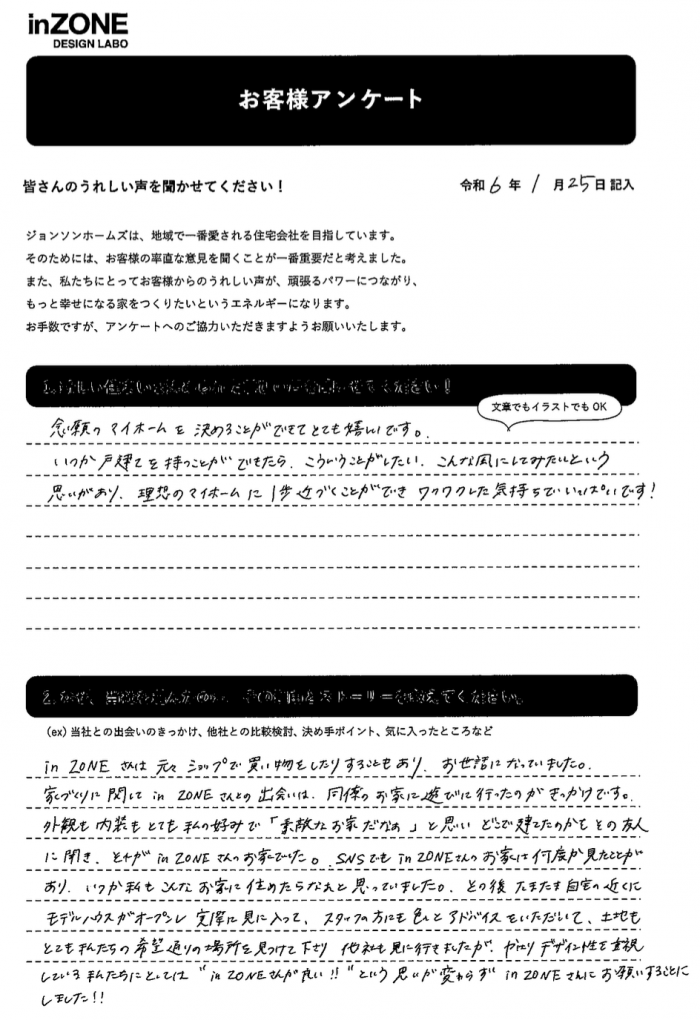 inZONE
DESIGN LABO
お客様アンケート
皆さんのうれしい声を聞かせてください！
令和6年 1月25日記入
ジョンソンホームズは、地域で一番愛される住宅会社を目指しています。
そのためには、お客様の率直な意見を聞くことが一番重要だと考えました。
また、私たちにとってお客様からのうれしい声が、頑張るパワーにつながり、
もっと幸せになる家をつくりたいというエネルギーになります。
お手数ですが、アンケートへのご協力いただきますようお願いいたします。
文章でもイラストでもOK
念願のマイホームを決めることができてとても嬉しいです。
いつか戸建てを持つことができたら、こういうことがしたい、こんな風にしてみたいという
思いがあり、理想のマイホームに1歩近づくことができワクワクした気持ちでいっぱいです！
(ex) 当社との出会いのきっかけ、他社との比較検討、決め手ポイント、気に入ったところなど
in ZONE さんは元々ショップで買い物をしたりすることもあり、お世話になっていました。
家づくりに関して in ZONEさんとの出会いは、同僚のお家に遊びに行ったのがきっかけです。
外観も内装もとても私の好みで「素敵なお家だなぁ」と思いどこで建てたのかをその友人
に聞き、それが in ZONEさんのお家でした。SNSでも in ZONEさんのお家は何度か見たことが
あり、いつか私もこんなお家に住めたらなぁと思っていました。その後たまたま自宅の近くに
モデルハウスがオープンし実際に見に入って、スタッフの方にも色々とアドバイスをいただいて、土地も
とても私たちの希望通りの場所を見つけて下さり 他社も見に行きましたが、やはりデザイン性を重視
している私たちにとしては "in ZONEさんが良い!!" という思いが変わらず in ZONEさんにお願いすることに
しました!!